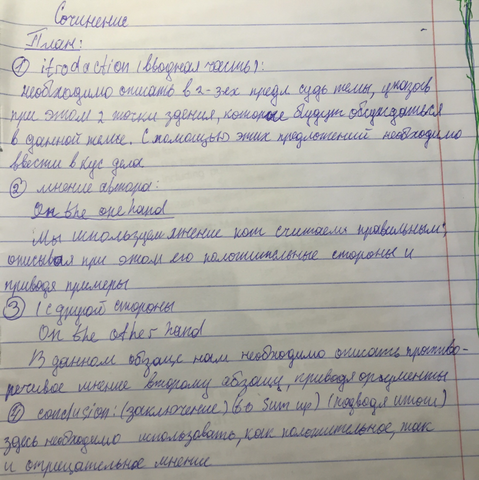 Сочинение
План:
① itroduction (вводная часть):
необходимо описать в 2-3ех предл судь темы, указав
при этом 2 точки здения, которые будут обсуждаться
в данной теме. С помощью этих предложений необходимо
ввести в кус дела
② мнение автора:
On the one hand
Мы используем мнение кот считаем правильным,
описывая при этом его положительные стороны и
приводя примеры
③ (с другой стороны
On the other hand
В данном абзаце нам необходимо описать противо-
речивое мнение второму абзацу, приводя аргументы
conclusion: (заключение) (to sum up) (подводя итоги)
здесь необходимо использовать, как положительное, так
и отрицательное мнение